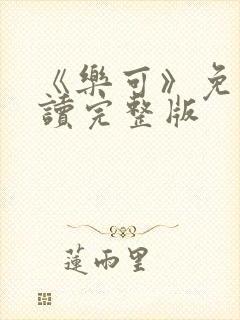 《樂可》免
讀完整版
蓮雨里